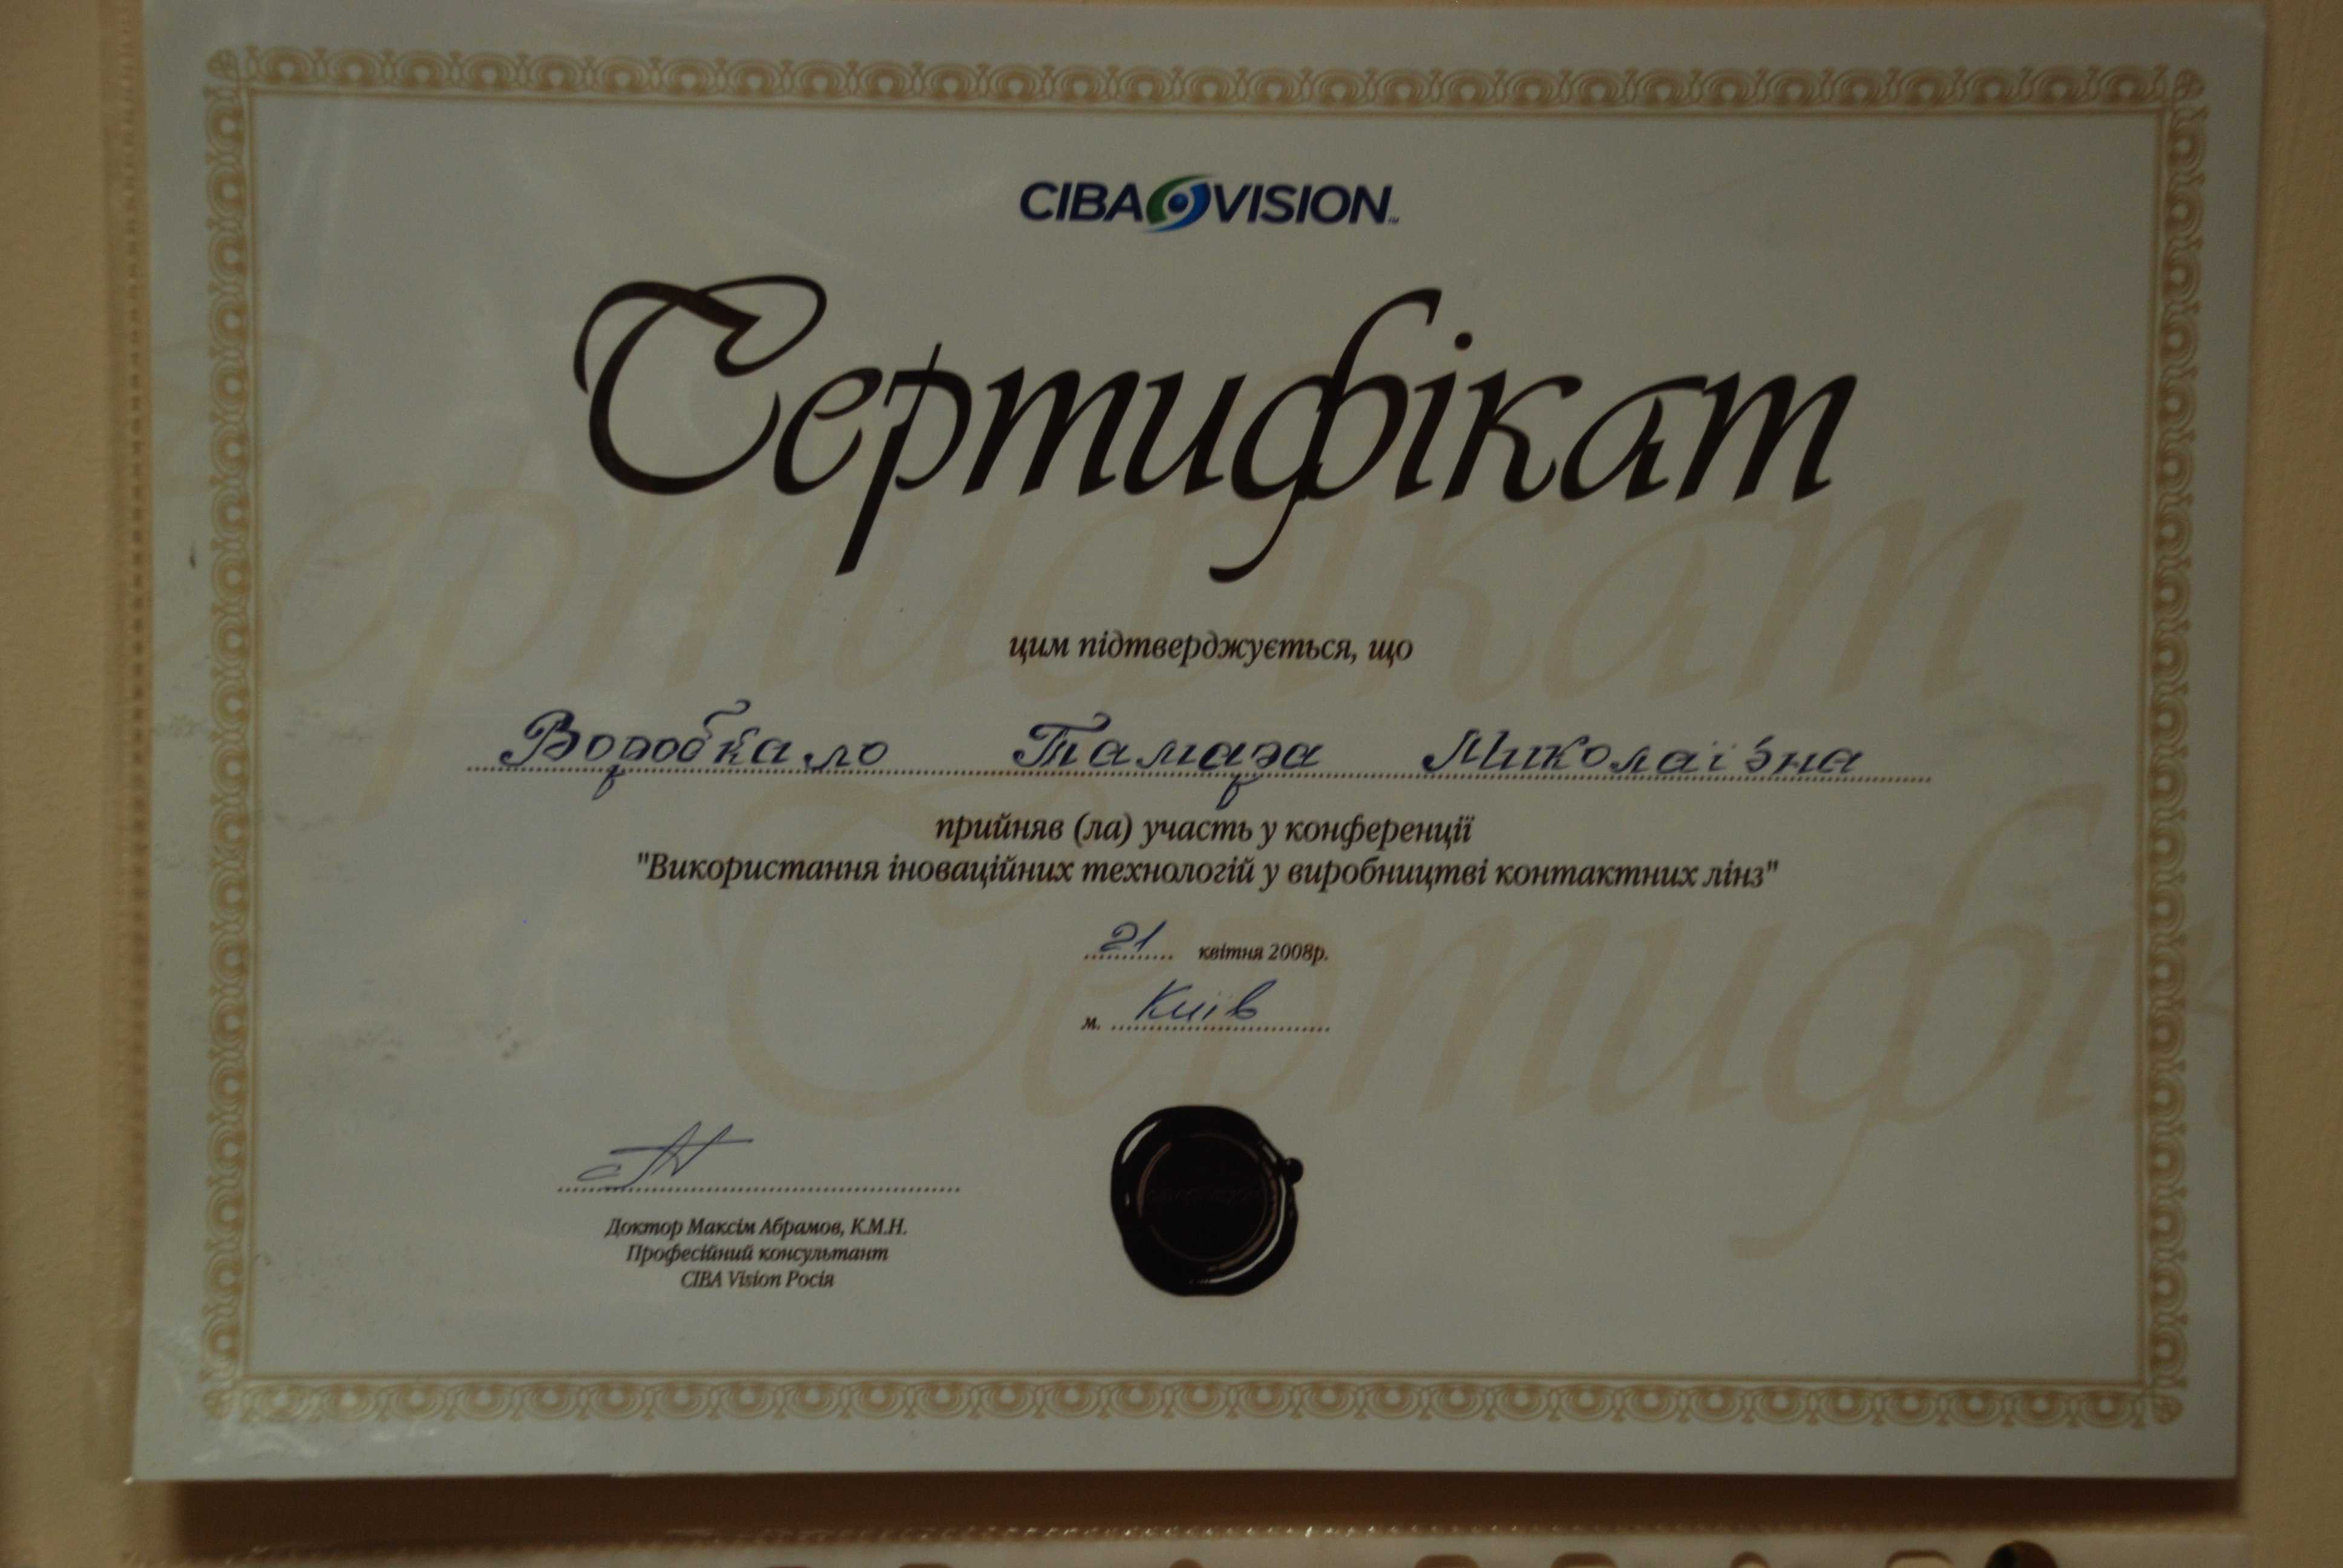 CIBA VISION™
Сертифікат
цим підтверджується, що
Воробкало Тамара Миколаївна
прийняв (ла) участь у конференції
"Використання іноваційних технологій у виробництві контактних лінз"
21 квітня 2008р.
м. Київ
Доктор Максім Абрамов, К.М.Н.
Професійний консультант
CIBA Vision Росія